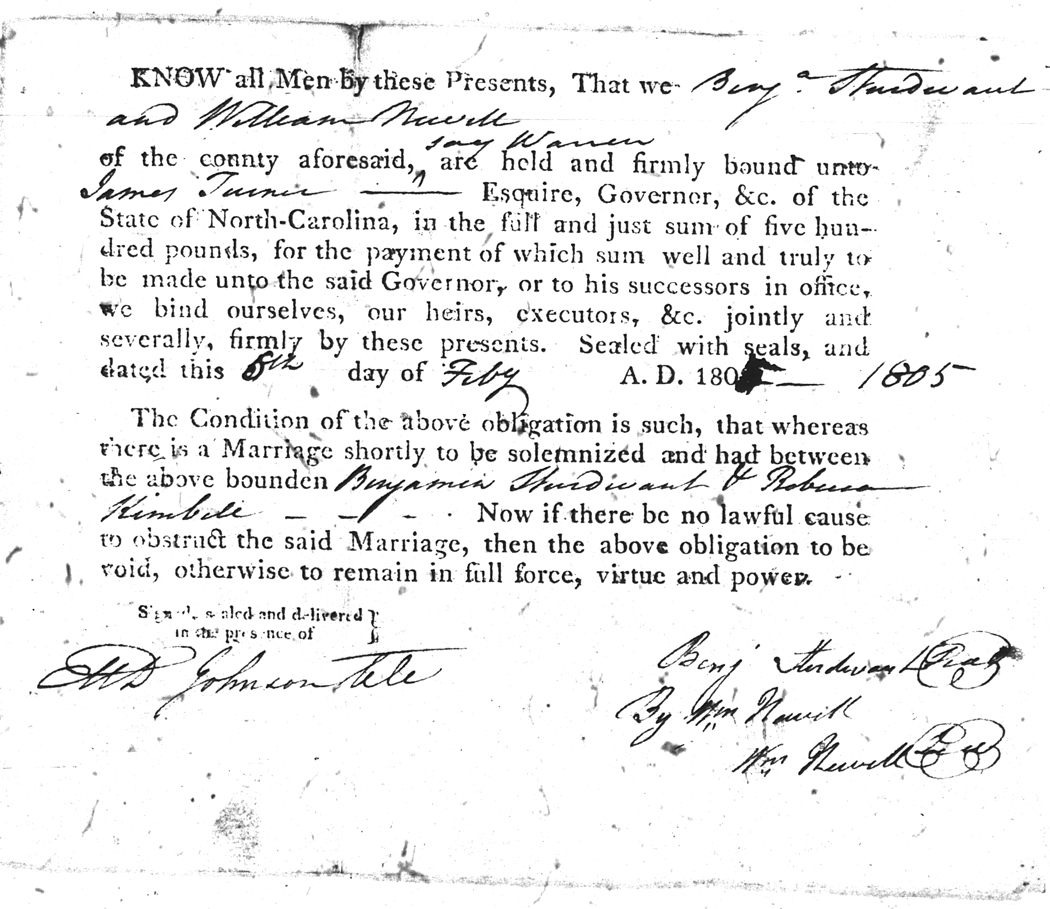 KNOW all Men by these Presents, That we Benjᵃ Sturdivant
and William Newell
say Warren
of the county aforesaid, ‸ are held and firmly bound unto
James Turner —— Esquire, Governor, &c. of the
State of North-Carolina, in the full and just sum of five hun-
dred pounds, for the payment of which sum well and truly to
be made unto the said Governor, or to his successors in office,
we bind ourselves, our heirs, executors, &c. jointly and
severally, firmly by these presents. Sealed with seals, and
dated this 8th day of Feby A. D. 1805 — 1805
The Condition of the above obligation is such, that whereas
there is a Marriage shortly to be solemnized and had between
the above bounden Benjamin Sturdivant & Rebecca
Kimbell – – – · Now if there be no lawful cause
to obstruct the said Marriage, then the above obligation to be
void, otherwise to remain in full force, virtue and power.
Signed, sealed and delivered }
in the presence of }
Johnson
Benj Sturdivant Seal
By Wm Newell
Wm Newell Seal